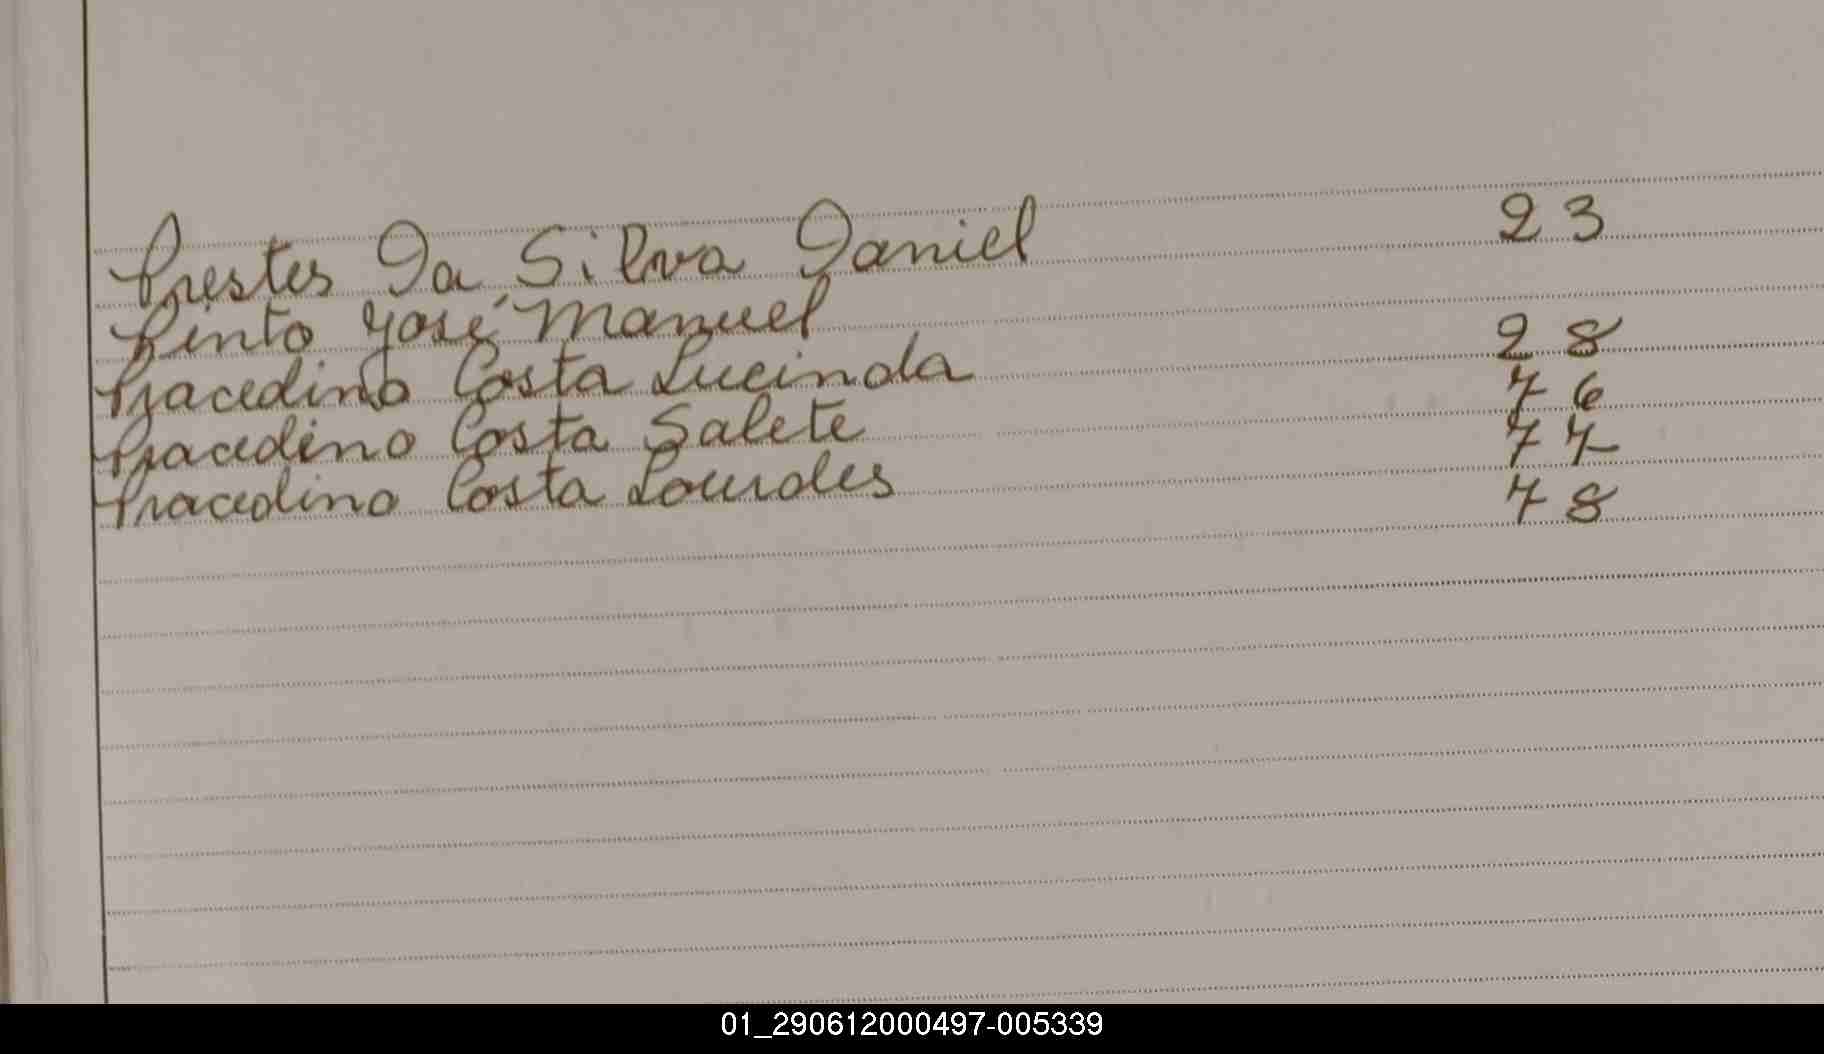 Prestes Da Silva Daniel 23
Pinto José Manuel 28
Pracedino Costa Lucinda 76
Pracedino Costa Salete 77
Pracedino Costa Lourdes 78
01_290612000497-005339